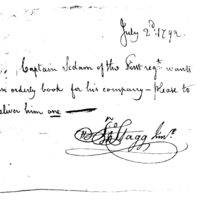 July 2d. 1792
Captain Sedam of the First regt. wants
orderly book for his company — Please to
deliver him one —
Stagg Junr.